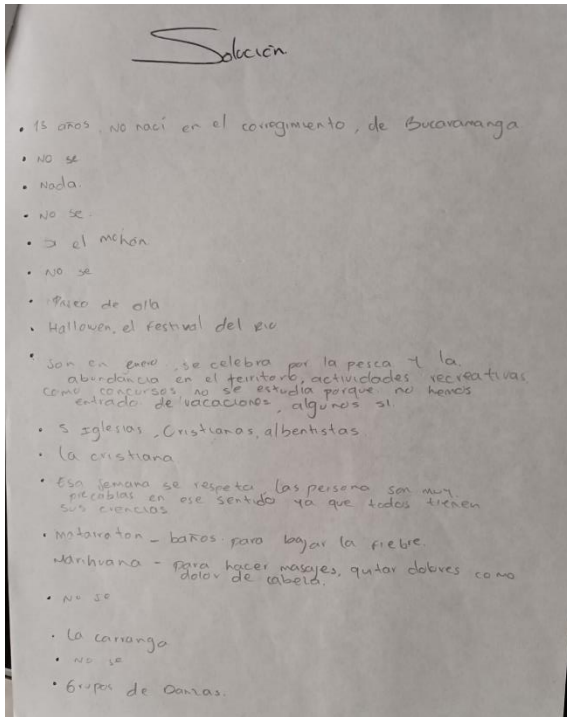 Solución
• 15 años, No naci en el corregimiento, de Bucaramanga
• NO se
• Nada.
• NO se.
• el mohán
• NO se
• de olla
• Hallowen, el festival del Rio
• Son en enero, se celebra por la pesca y la
abundancia en el territorio, actividades recreativas
como concursos, no se estudia porque no hemos
entrado de vacaciones, algunos si.
• 5 Iglesias, Cristianas, albentistas
• La cristiana
• Esa semana se respeta las persona son muy
en ese sentido ya que todos tienen
sus crencias
• Mataraton - baños para bajar la fiebre.
Marihuana - para hacer masajes, quitar dolores como
dolor de cabeza.
• No se
• La carranga
• No se
• Grupos de Danzas.